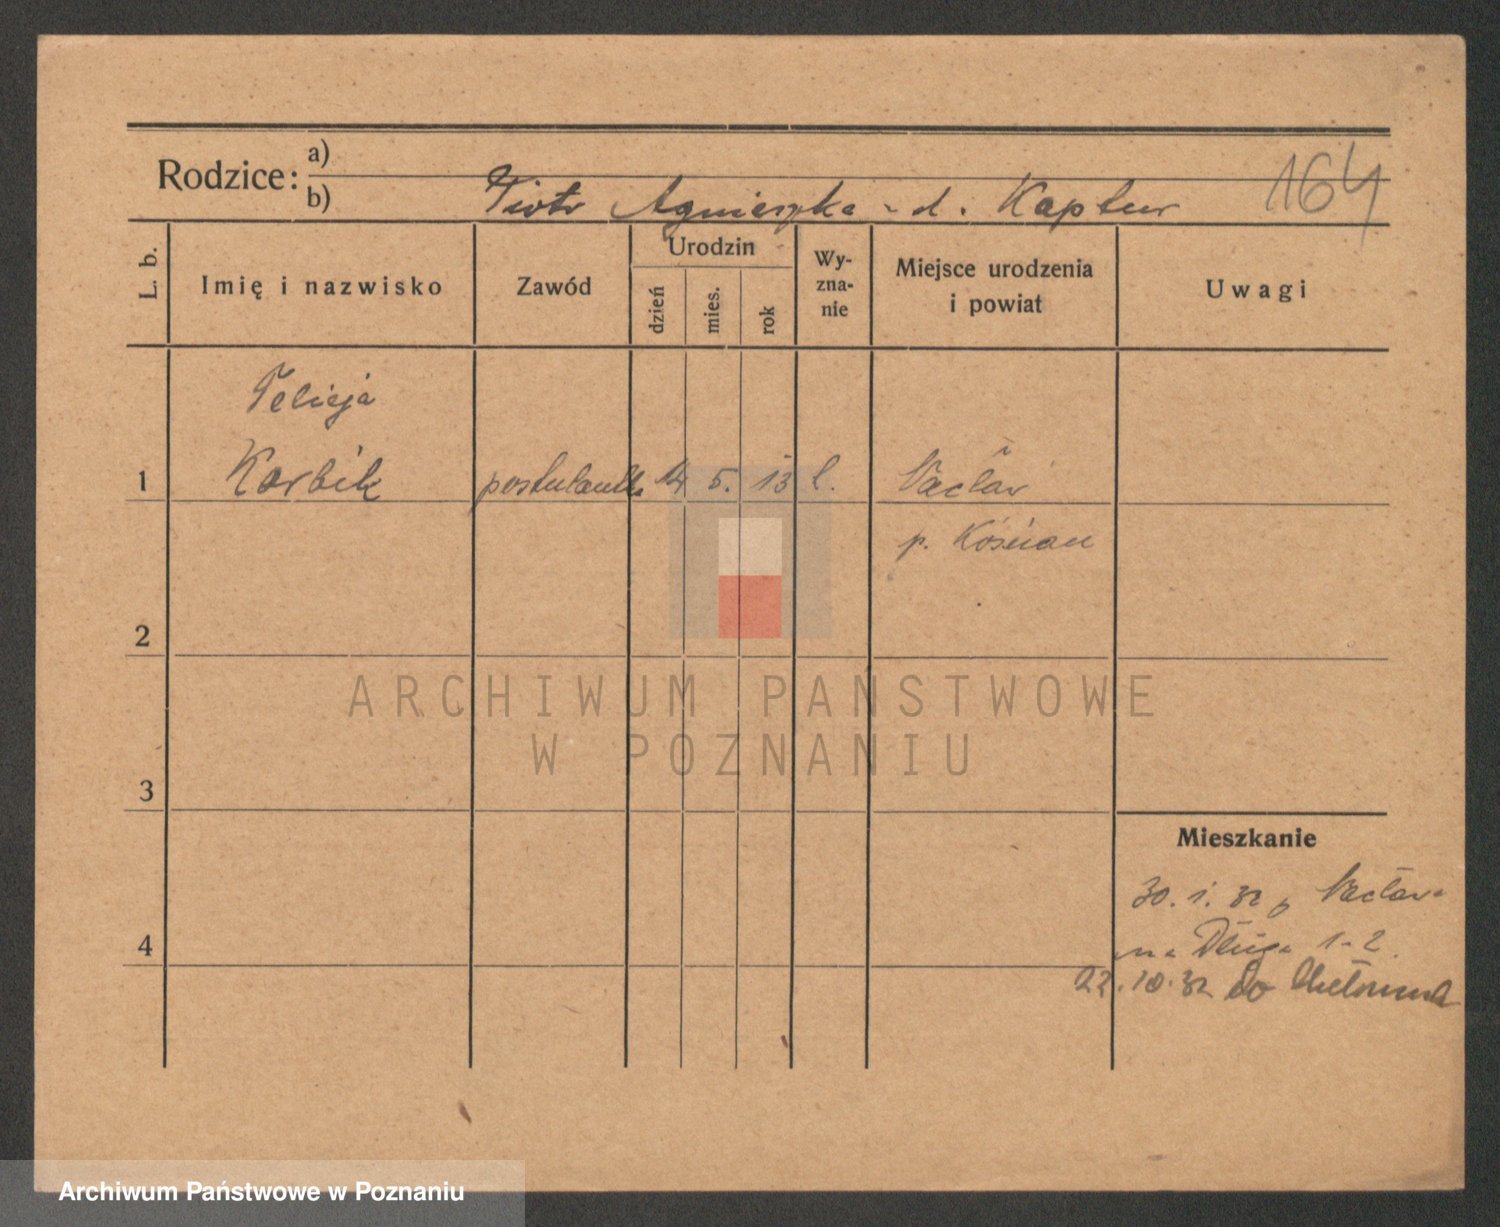 Rodzice: a)
b) Piotr Agnieszka - d. Kaptur
164
L. b.
Imię i nazwisko
Zawód
Urodzin
dzień
mies.
rok
Wy-
zna-
nie
Miejsce urodzenia
i powiat
Uwagi
Felicja
1 Korbik postulantka 14 5. 13 l. Wacław
p. Kościan
2
3
4
Mieszkanie
30. 1. 32 z Wacława
na Długa 1-2
22.10.32 do
ARCHIWUM PAŃSTWOWE
W POZNANIU
Archiwum Państwowe w Poznaniu